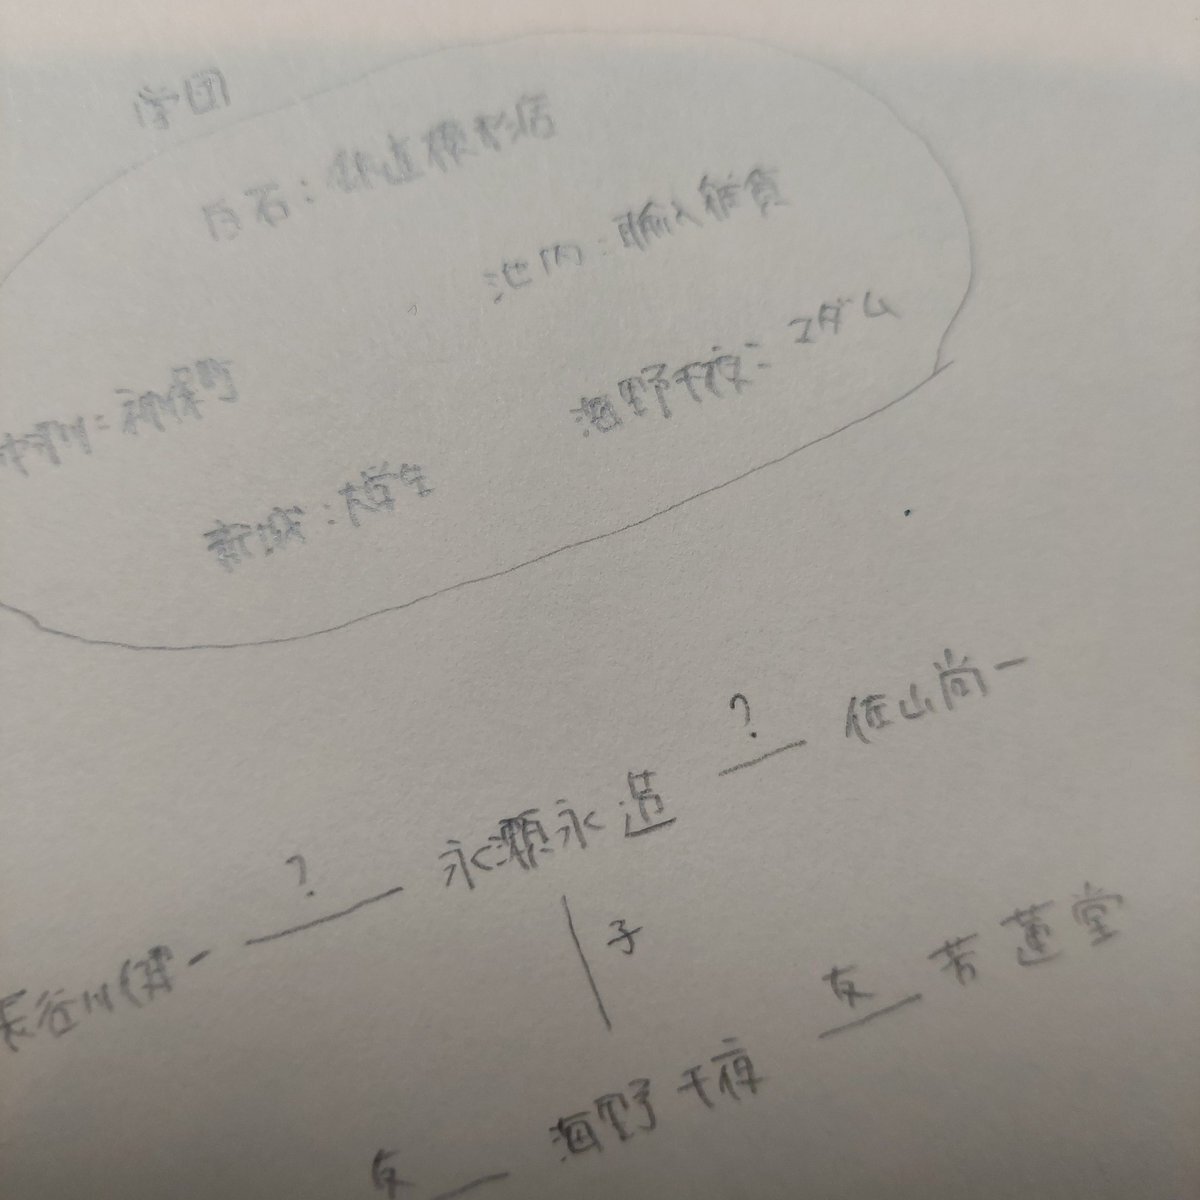 学団
白石：鉄道模型店
池内：輸入雑貨
海野千夜：マダム
中津川：神保町
新城：大学生
? 佐山尚一
? 永瀬永造
長谷川健一
子
友 芳蓮堂
海野千夜
友